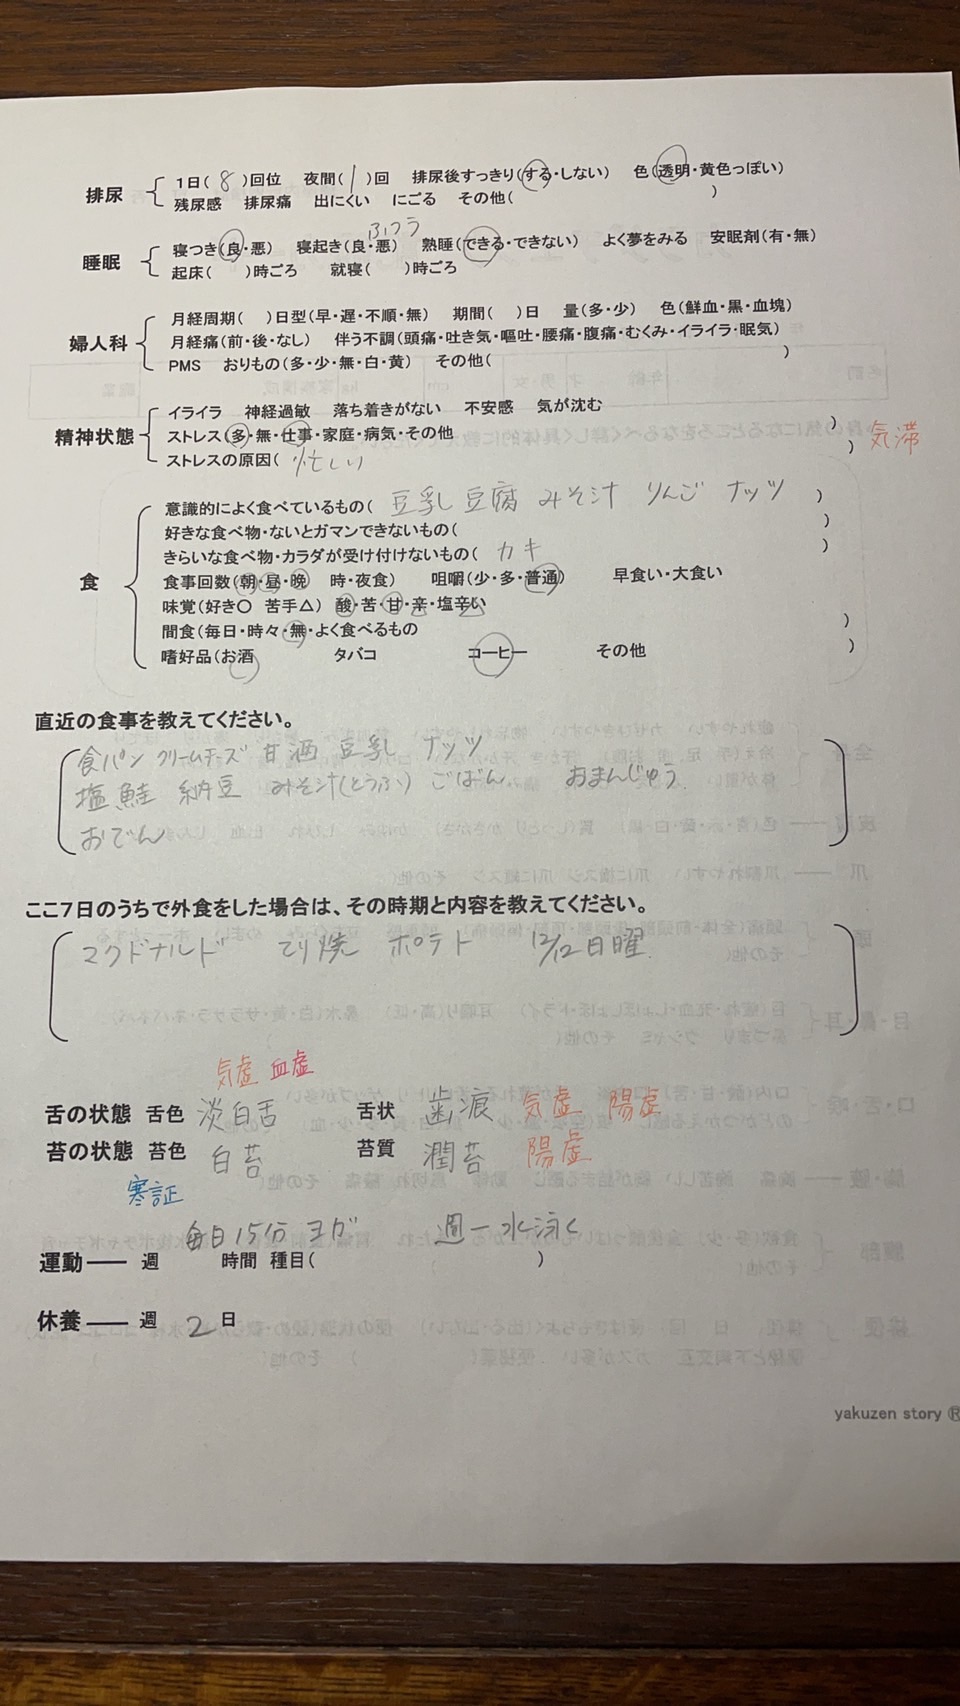 排尿 1日( 8 )回位 夜間( 1 )回 排尿後すっきり(する・しない) 色(透明・黄色っぽい)
残尿感 排尿痛 出にくい にごる その他( )
ふつう
睡眠 寝つき(良・悪) 寝起き(良・悪) 熟睡(できる・できない) よく夢をみる 安眠剤(有・無)
起床( )時ごろ 就寝( )時ごろ
婦人科 月経周期( )日型(早・遅・不順・無) 期間( )日 量(多・少) 色(鮮血・黒・血塊)
月経痛(前・後・なし) 伴う不調(頭痛・吐き気・嘔吐・腰痛・腹痛・むくみ・イライラ・眠気)
PMS おりもの(多・少・無・白・黄) その他( )
精神状態 イライラ 神経過敏 落ち着きがない 不安感 気が沈む
ストレス(多・無・仕事・家庭・病気・その他 )
ストレスの原因( 忙しい ) 気滞
食 意識的によく食べているもの( 豆乳 豆腐 みそ汁 りんご ナッツ )
好きな食べ物・ないとガマンできないもの( )
きらいな食べ物・カラダが受け付けないもの( カキ )
食事回数(朝・昼・晩 時・夜食) 咀嚼(少・多・普通) 早食い・大食い
味覚(好き〇 苦手△) 酸・苦・甘・辛・塩辛い
間食(毎日・時々・無・よく食べるもの )
嗜好品(お酒 タバコ コーヒー その他 )
直近の食事を教えてください。
食パン クリームチーズ 甘酒 豆乳 ナッツ
塩鮭 納豆 みそ汁(とうふ) ごはん おまんじゅう
おでん
ここ7日のうちで外食をした場合は、その時期と内容を教えてください。
マクドナルド てり焼 ポテト 12/12日曜
気虚 血虚
舌の状態 舌色 淡白舌 舌状 歯痕 気虚 陽虚
苔の状態 苔色 白苔 苔質 潤苔 陽虚
寒証
毎日15分 ヨガ 週一水泳
運動―― 週 時間 種目( )
休養―― 週 2 日
yakuzen story ®